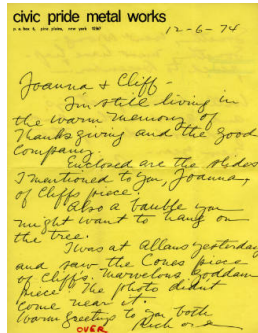 civic pride metal works
p.o. box 4, pine plains, new york 12567
12-6-74
Joanna & Cliff -
I'm still living in
the warm memory of
Thanksgiving and the good
company.
Enclosed are the slides
I mentioned to you, Joanna,
of Cliff's piece.
Also a bauble you
might want to hang on
the tree.
I was at Allans yesterday
and saw the Cones piece
of Cliff's. Marvelous Goddam
piece! The photo didnt
come near it.
Warm greetings to you both
OVER